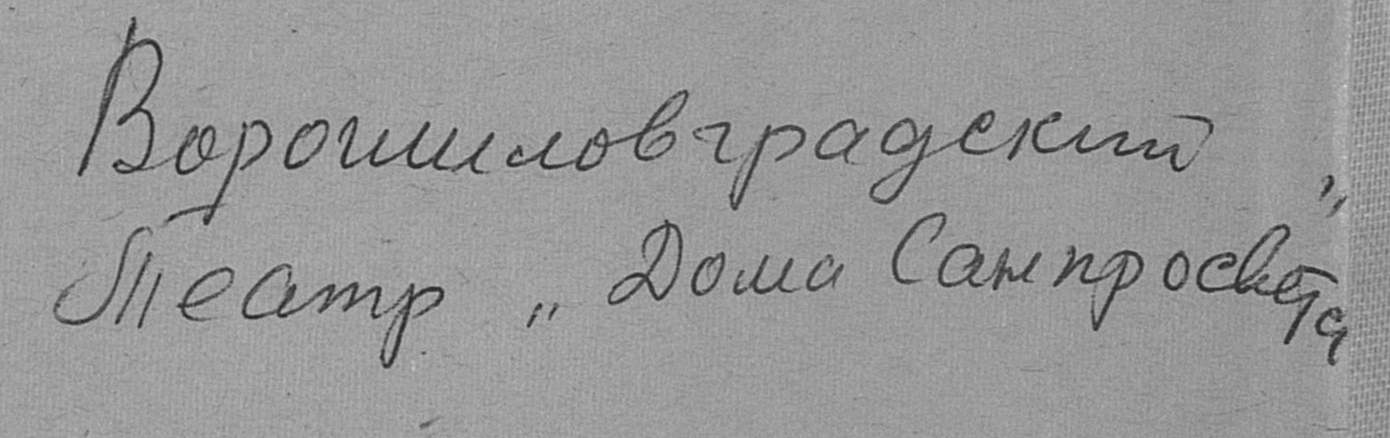 Ворошиловградский
Театр „Дома Санпросвета"